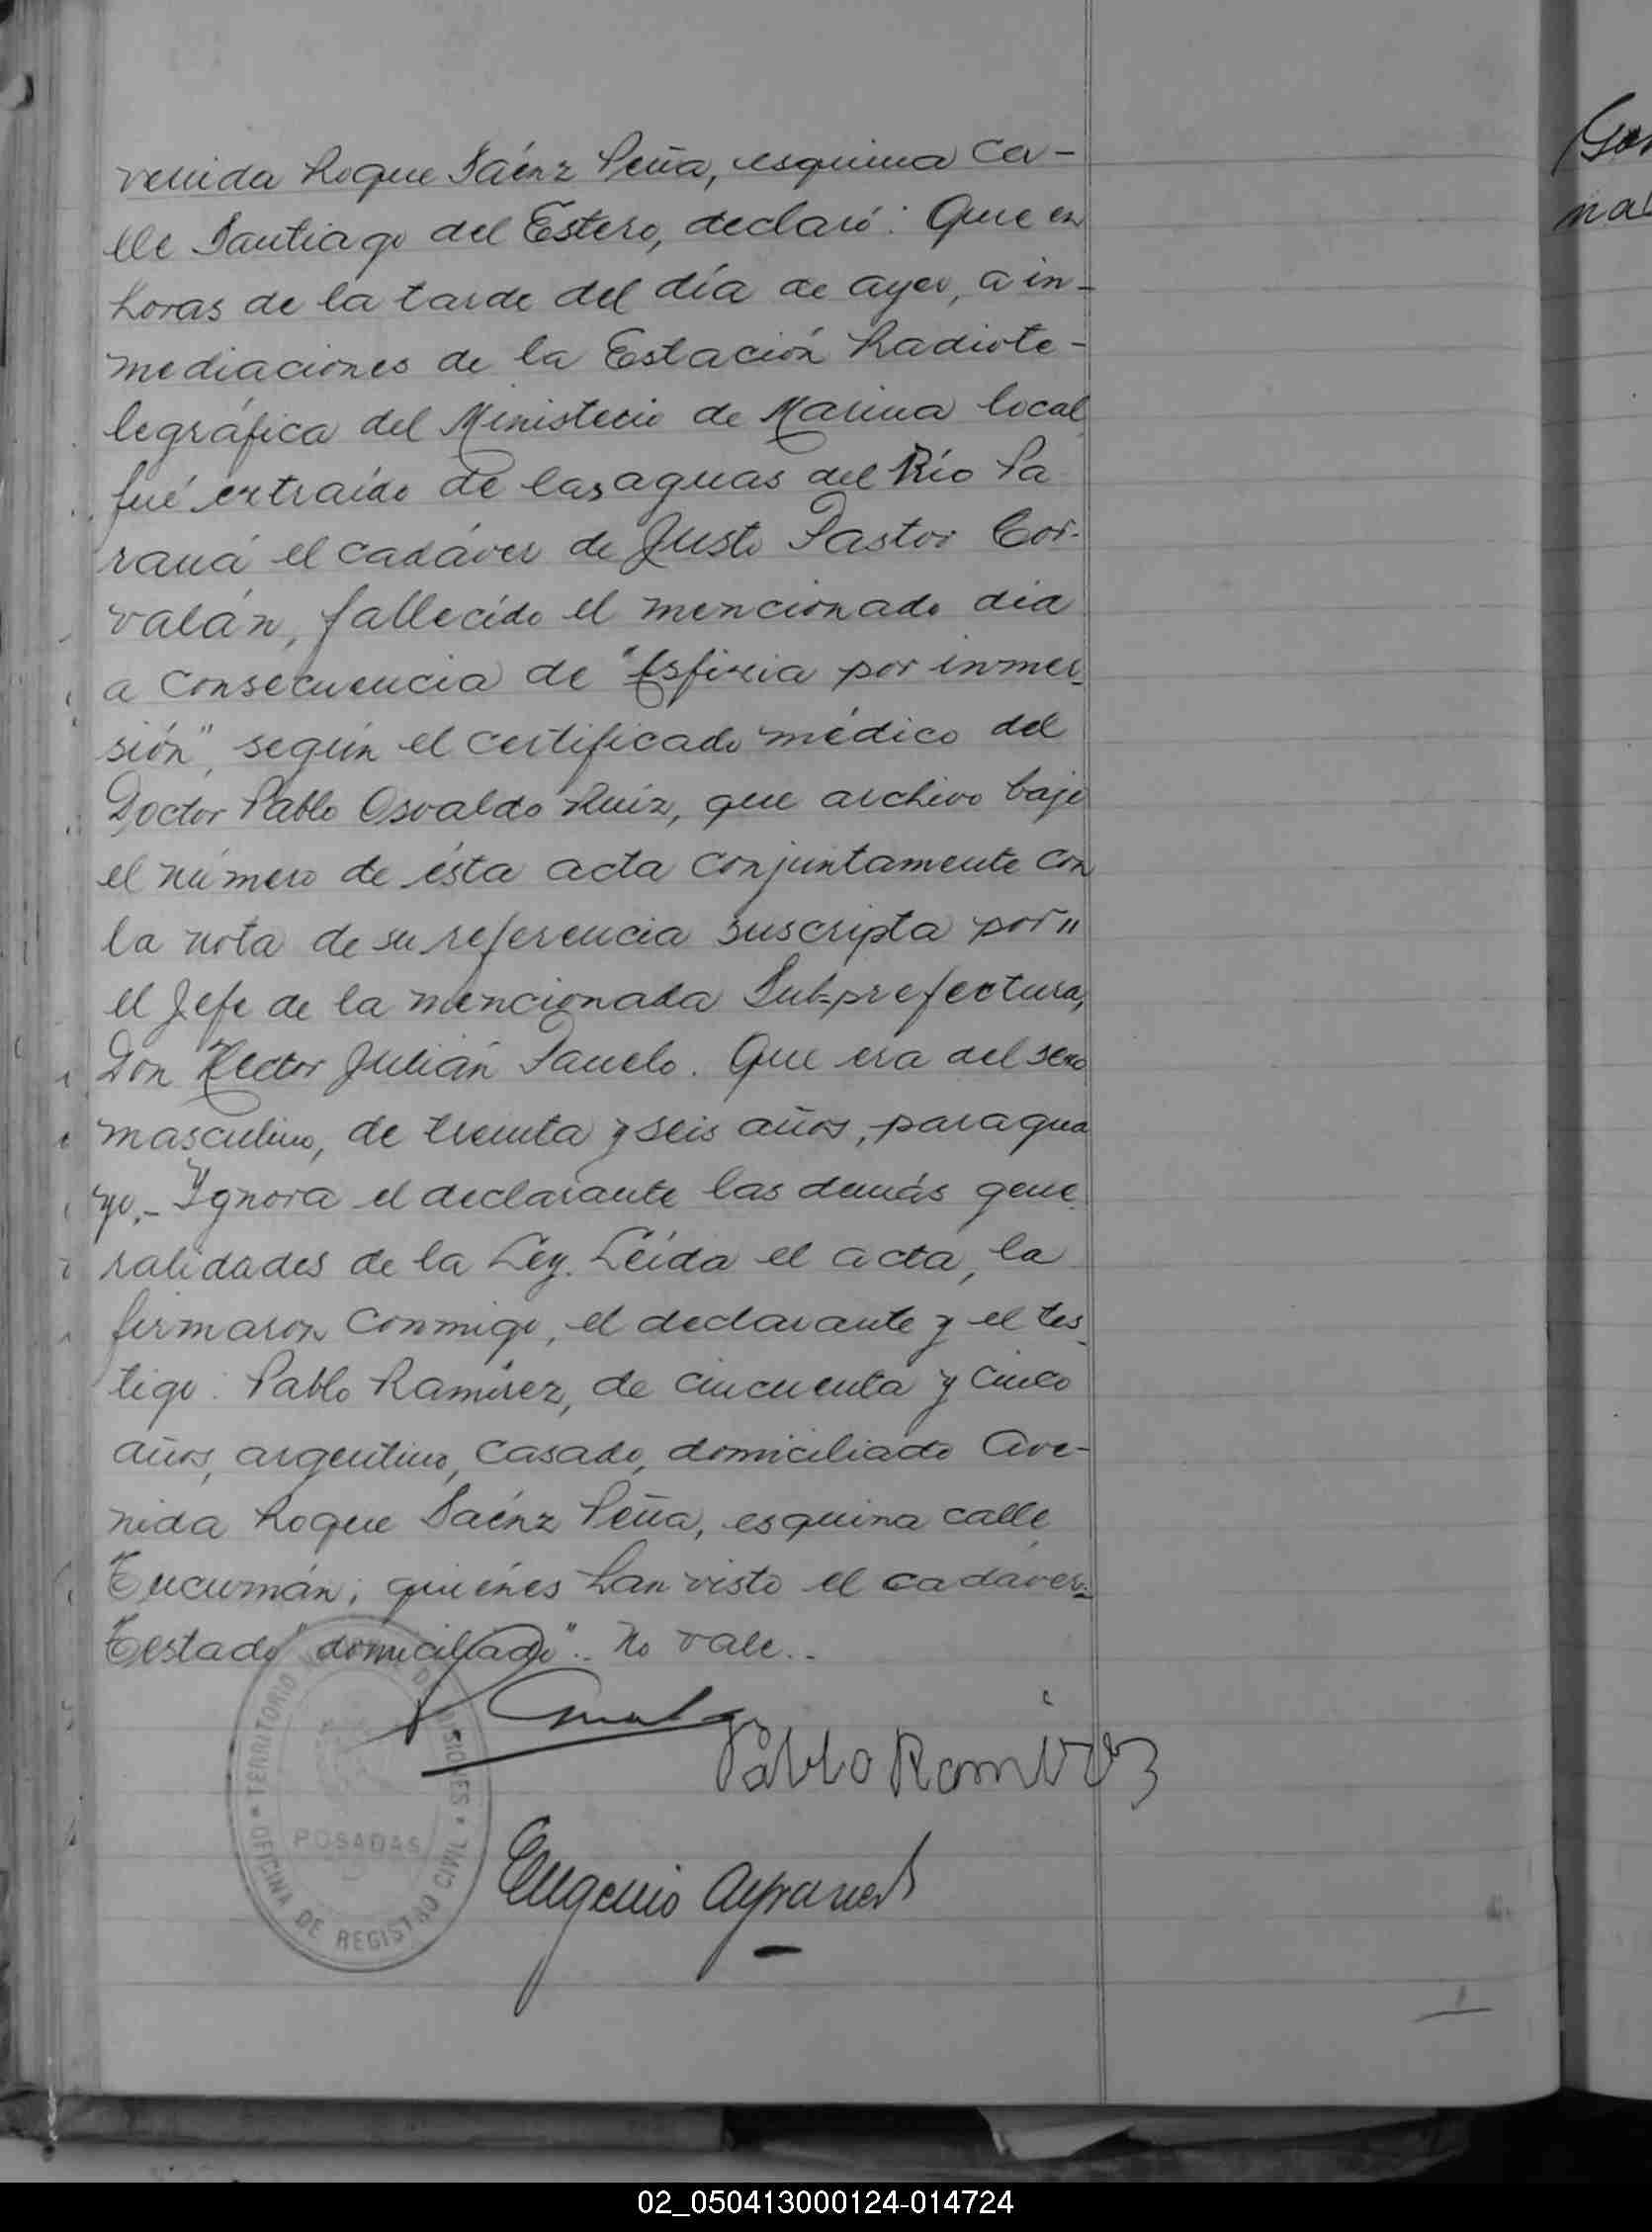 venida Roque Sáenz Peña, esquina ca-
lle Santiago del Estero, declaró: Que en
horas de la tarde del día de ayer, a in-
mediaciones de la Estación Radiote-
legráfica del Ministerio de Marina local,
fué extraído de las aguas del Río Pa
raná el cadáver de Justo Pastor Cor-
valán, fallecido el mencionado día
a consecuencia de "Asfixia por inmer-
sión", según el certificado médico del
Doctor Pablo Osvaldo Ruíz, que archivo bajo
el número de ésta acta conjuntamente con
la nota de su referencia suscripta por"
el Jefe de la mencionada Sub-prefectura,
Don Hector Julián Panelo. Que era del sexo
masculino, de treinta y seis años, paragua
yo.- Ignora el declarante las demás gene
ralidades de la Ley. Leída el acta, la
firmaron conmigo, el declarante y el tes-
tigo: Pablo Ramírez, de cincuenta y cinco
años, argentino, casado, domiciliado Ave-
nida Roque Sáenz Peña, esquina calle
Tucumán; quiénes han visto el cadáver.-
Testado "domiciliado".. No vale..
Pablo Ramirez
Eugenio
TERRITORIO DE MISIONES * OFICINA DE REGISTRO CIVIL *
POSADAS
02_050413000124-014724